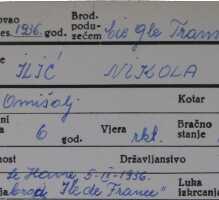 ovao Brod.
es. 1936. god. podu- cie gle Trans
zećem
ILIĆ NIKOLA
Omišalj Kotar
ni 6 god. Vjera rkt. Bračno
a stanje
nost Državljanstvo
le Havre 5-IX-1936. Luka
ja brod „Ile de France" iskrcanj